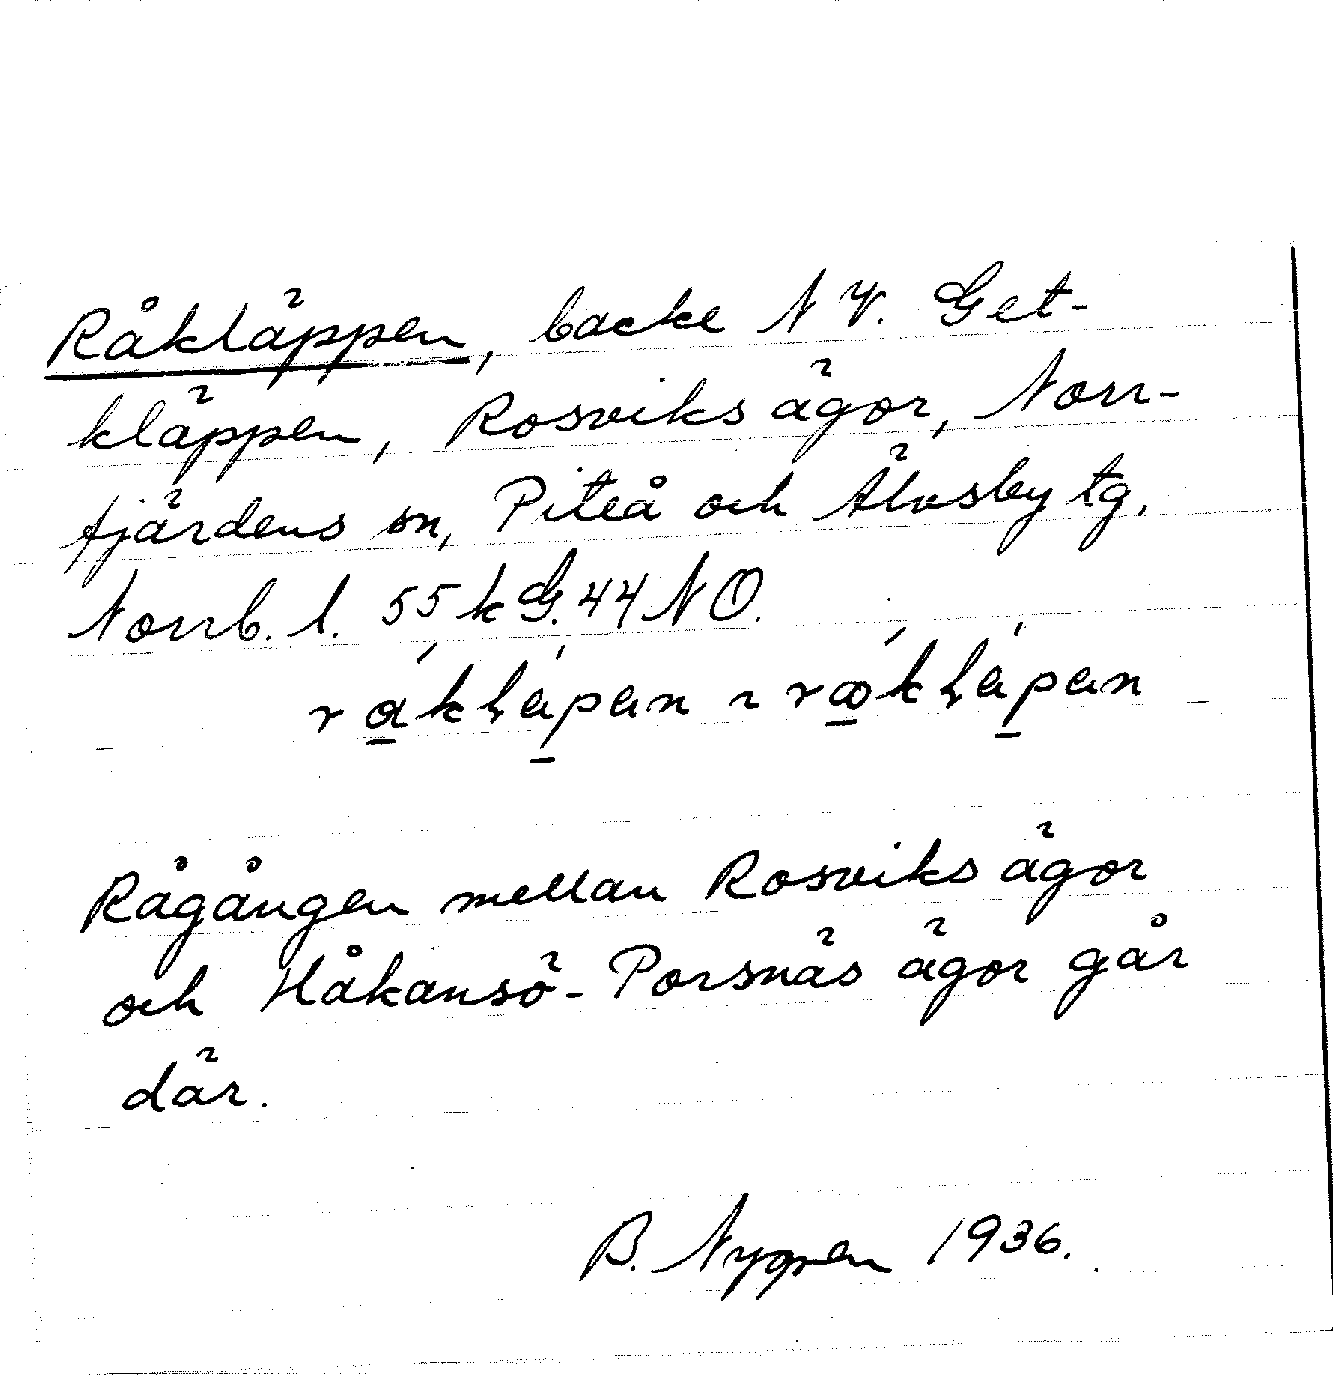 Råkläppen, backe N V. Get-
kläppen, Rosviks ägor, Norr-
fjärdens sn, Piteå och Älvsby tg,
Norrb. l. 55 k G. 44 NO.
Rågången mellan Rosviks ägor
och Håkansö-Porsnäs ägor går
där.
B. Nygren 1936.